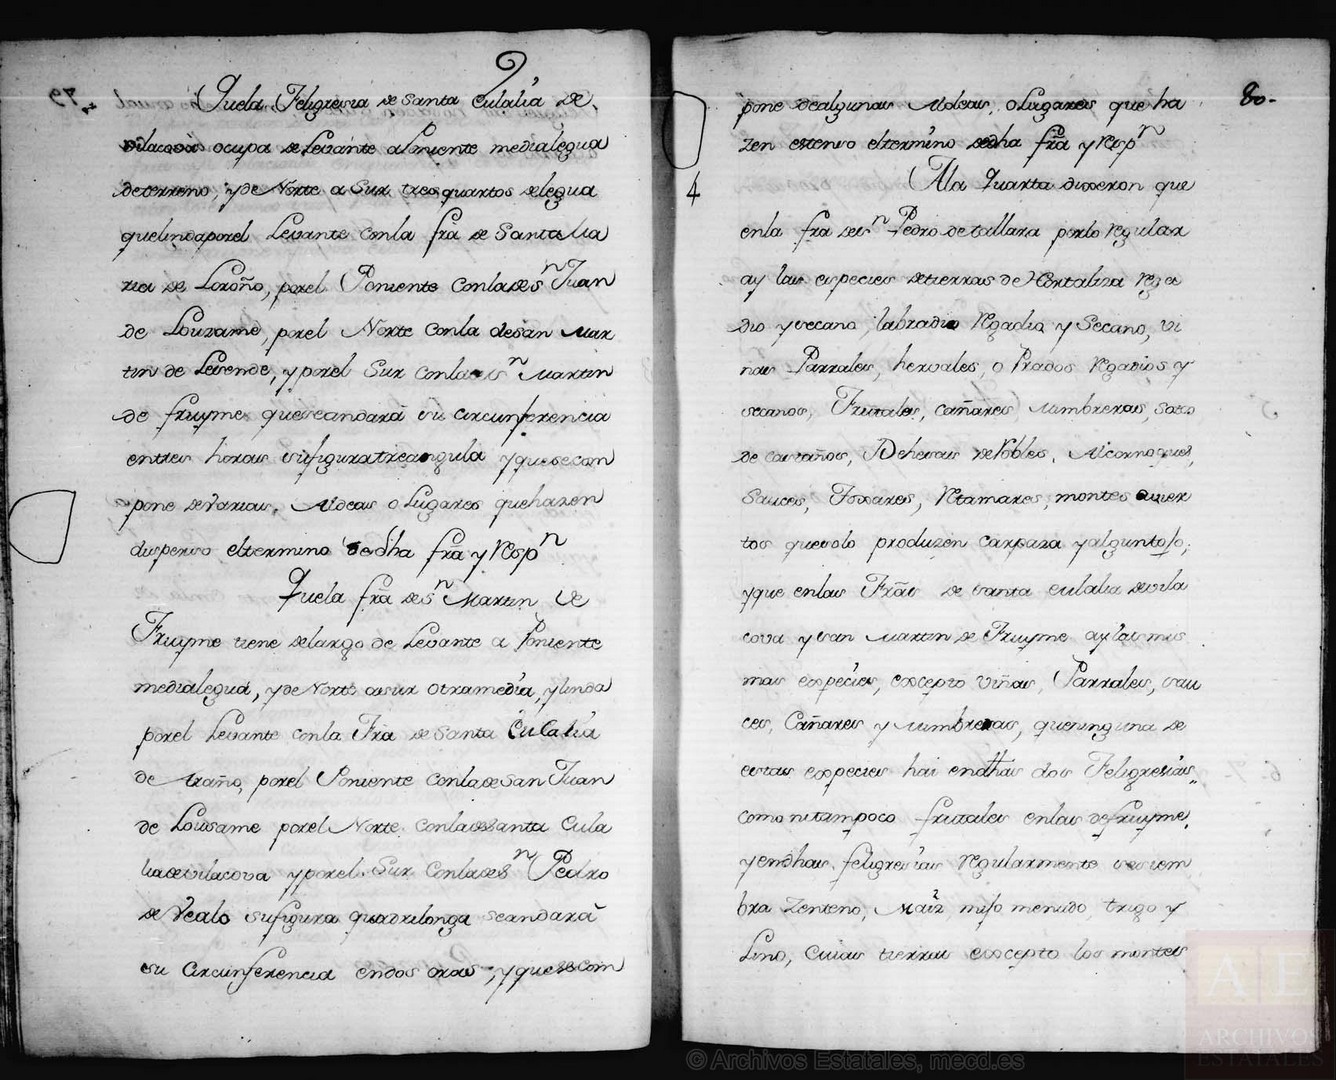 79
Quela Feligresia de Santa Eulalia de
vilacova ocupa de Levante a Poniente medialegua
deterreno, y de Norte a Sur tres quartos de legua
quelindaporel Levante conla frâ de Santa Ma
ria de Loroño, porel Poniente conladesn Juan
de Lousame, porel Norte conla desan Mar
tin de Lesende, y porel Sur conladesn Martin
de fruyme queseandará su circunferencia
entres horas sufiguratreangula yquesecom
pone devarias Aldeas o Lugares quehazen
disperso eltermino dedha frâ y respn
Quela frâ desn Martin de
Fruyme tiene delargo de Levante a Poniente
medialegua, y de Norte asur otramedia, ylinda
porel Levante conla Frâ de Santa Eulalia
de Araño, porel Poniente conladeSan Juan
de Lousame porel Norte conladeSanta Eula
liadevilacova yporel Sur conladesn Pedro
de sufigura quadrilonga seandará
su circunferencia endos oras, yquesecom
80.
pone dealgunas Aldeas, oLugares que ha
zen estenso eltermino dedha frâ y Resp n
4
Ala Quarta dixeron que
enla frâ desn Pedro detallara porlo regular
ay las especies detierras de Hortaliza rega
dio ysecano, labradio regadio y Secano, vi
ñas Parrales, hervales, o Prados regadios y
secanos, Frutales, cañares Mimbreras, Soto
de castaños, Dehesas deRobles, Alcornoques,
Sauces, Toxares, Retamares, montes avier
tos quesolo produzen carpaza yalguntojo;
yque enlas Frâs de Santa eulalia devila
cova y san Martin de Fruyme ay las mis
mas especies, excepto viñas, Parrales, sau
ces, Cañares y Mimbreras, queninguna de
estas especies hai endhas dos Feligresias,
como ni tampoco frutales enlas defruyme,
yendhas feligresias regularmente sesiem
bra Zenteno, Maiz, mijo menudo, trigo y
Lino, cuias tierras excepto los montes
© Archivos Estatales, mecd.es
AE
ARCHIVOS
ESTATALES